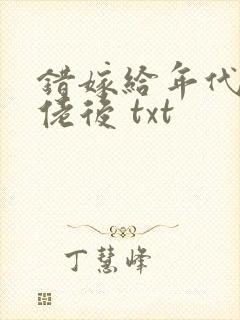 错嫁给年代
佬後 txt
丁慧峰